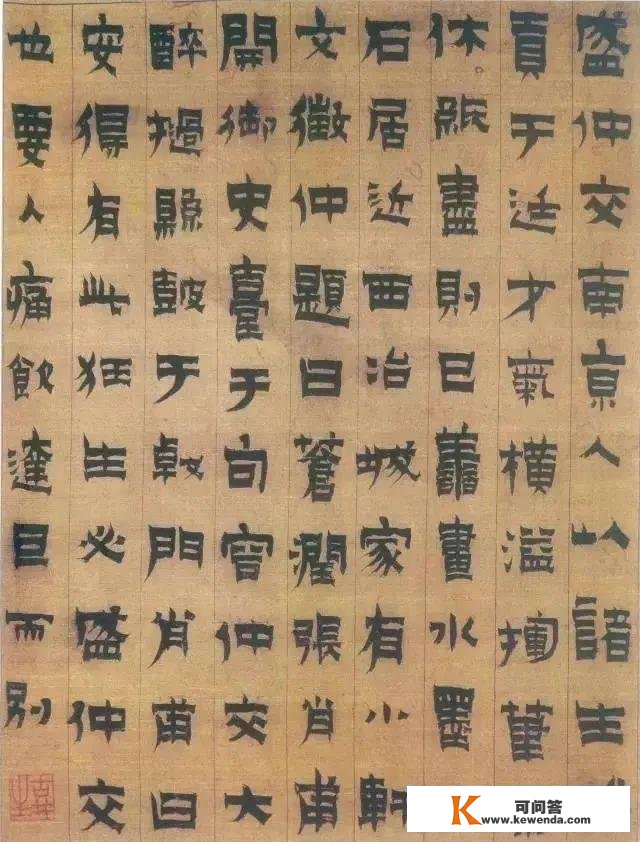 盛仲交南京人以諸生
貢于廷才氣橫溢揮筆
休紙盡則已善畫水墨
石居近西冶城家有小軒
文徵仲題曰蒼潤張肖甫
開御史臺于句容仲交大
醉撾縣鼓于戟門肖甫曰
安得有此狂生必盛仲交
也要人痛飲達旦而別
K 可问答
www.kewenda.com